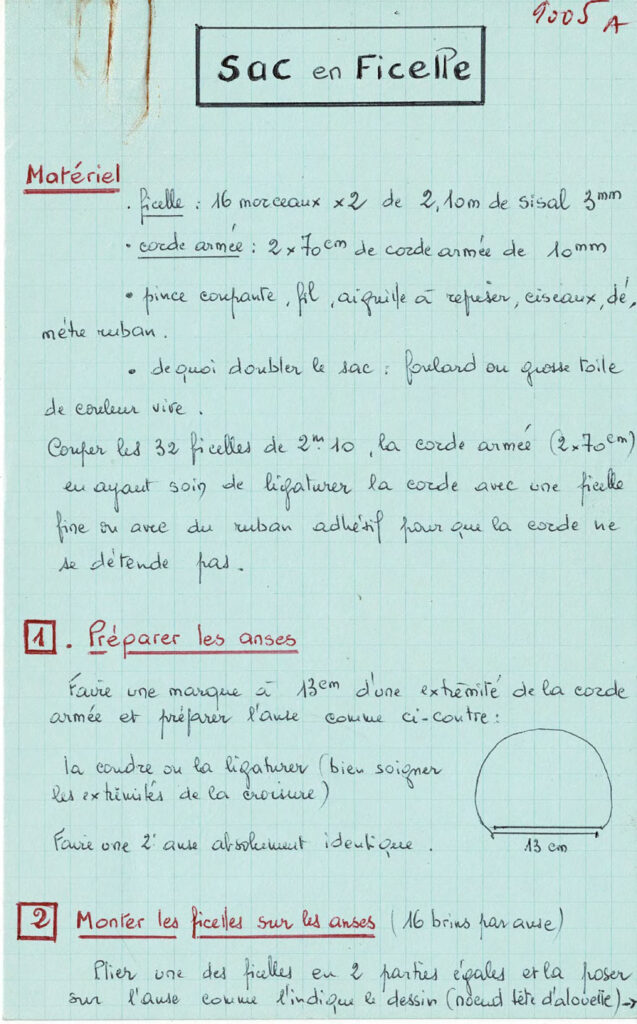 9005 A
Sac en Ficelle
Matériel
. ficelle : 16 morceaux x2 de 2,10m de sisal 3mm
• corde armée : 2 x 70cm de corde armée de 10mm
• pince coupante, fil, aiguille à repriser, ciseaux, dé,
mètre ruban.
• de quoi doubler le sac : foulard ou grosse toile
de couleur vive.
Couper les 32 ficelles de 2m10, la corde armée (2x70cm)
en ayant soin de ligaturer la corde avec une ficelle
fine ou avec du ruban adhésif pour que la corde ne
se détende pas.
1. Préparer les anses
Faire une marque à 13cm d'une extrêmité de la corde
armée et préparer l'anse comme ci-contre :
la coudre ou la ligaturer (bien soigner
les extrêmités de la croisure)
Faire une 2e anse absolument identique.
13 cm
2 Monter les ficelles sur les anses (16 brins par anse)
Plier une des ficelles en 2 parties égales et la poser
sur l'anse comme l'indique le dessin (noeud tête d'alouette) →